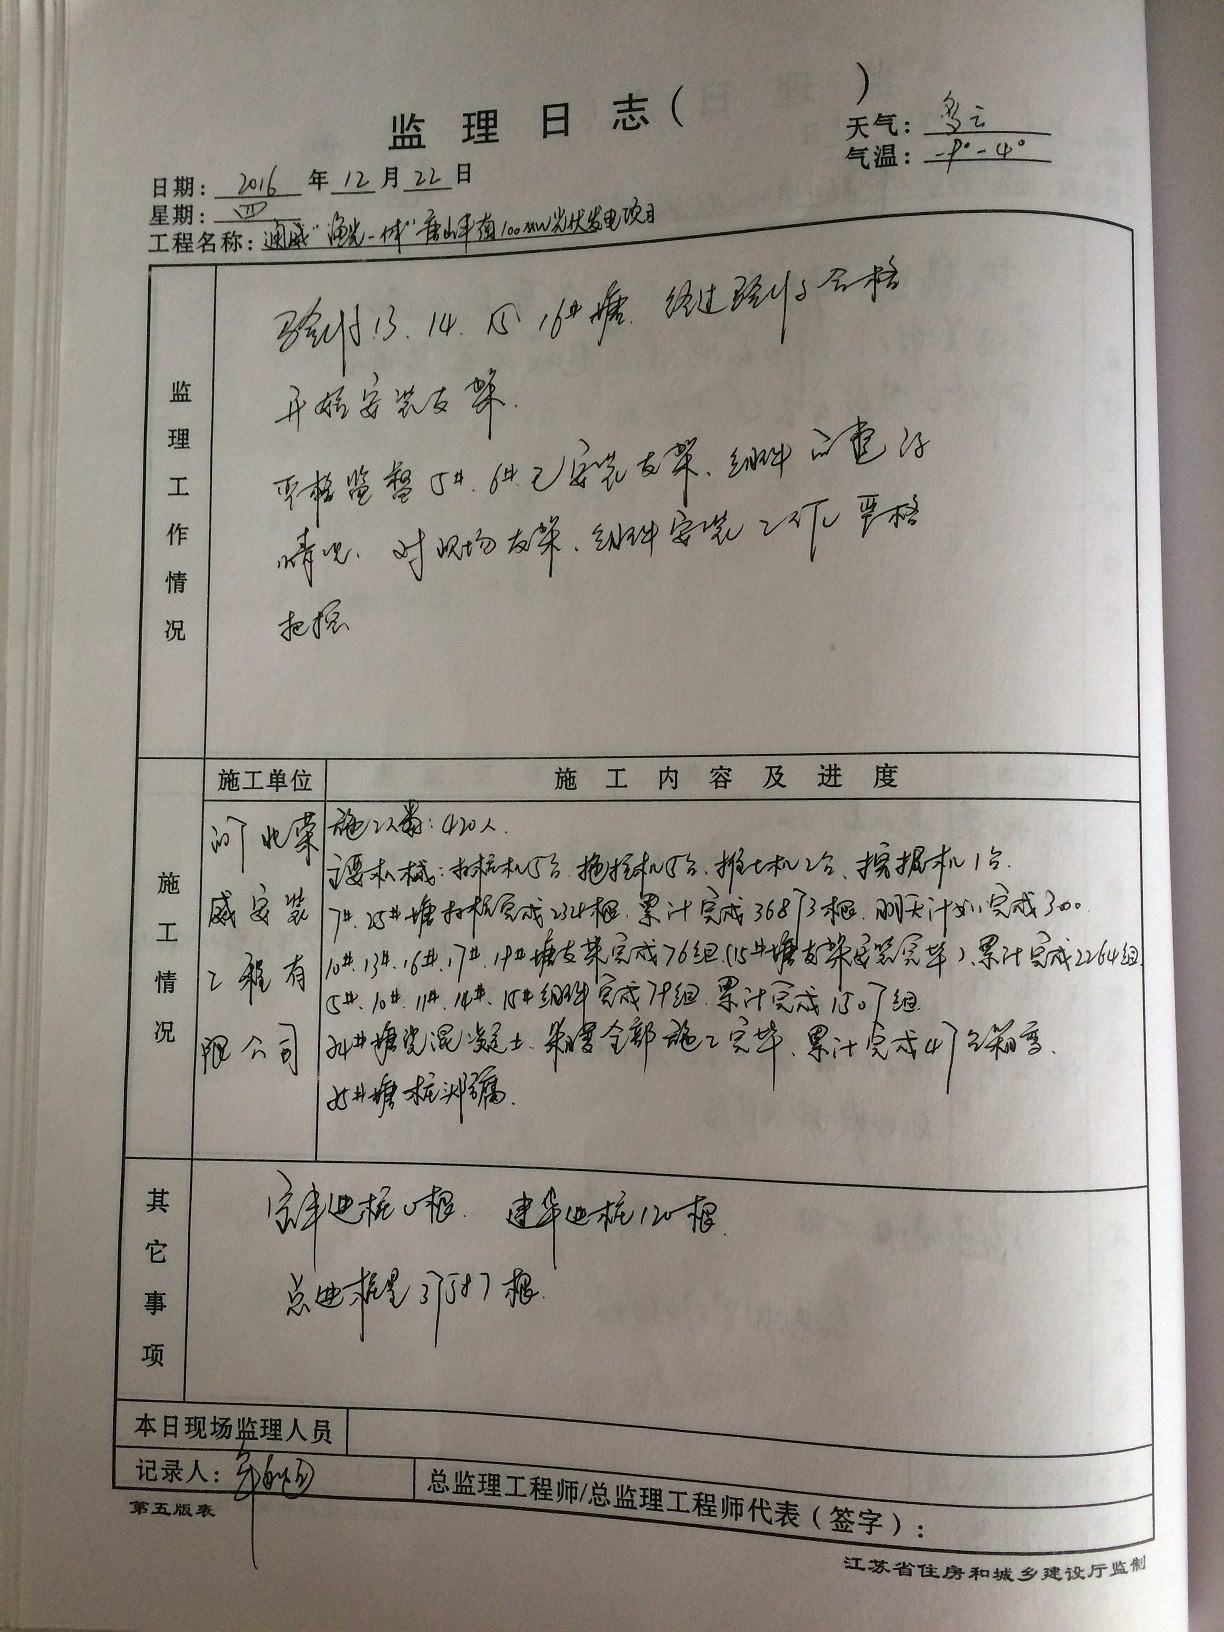 监理日志(          )
天气：多云
气温：-9°-4°
日期：2016年12月22日
星期：四
工程名称：通威"渔光一体"唐山丰南100MW光伏发电项目
监理工作情况
验收13、14、15、16#塘，经过验收合格
开始安装支架．
严格监督5#、6#已安装支架、组件的复仔
情况、对现场支架、组件安装工作严格
把控
施工情况
施工单位
施工内容及进度
河北荣
威安装
工程有
限公司
施工人数：420人．
主要机械：打桩机5台、拖拉机5台、推土机2台、挖掘机1台．
7#、25#塘打桩完成232根．累计完成36873根．明天计划完成300．
10#、13#、16#、17#、19#塘支架完成76组(15#塘支架安装完毕)、累计完成2264组
5#、10#、11#、14#、15#组件完成79组．累计完成1507组
24#塘浇混凝土．箱变全部施工完毕、累计完成47台箱变．
25#塘桩头防腐．
其它事项
进桩0根． 建华进桩120根．
总进桩是37587根．
本日现场监理人员
记录人：
总监理工程师/总监理工程师代表(签字)：
第五版表
江苏省住房和城乡建设厅监制